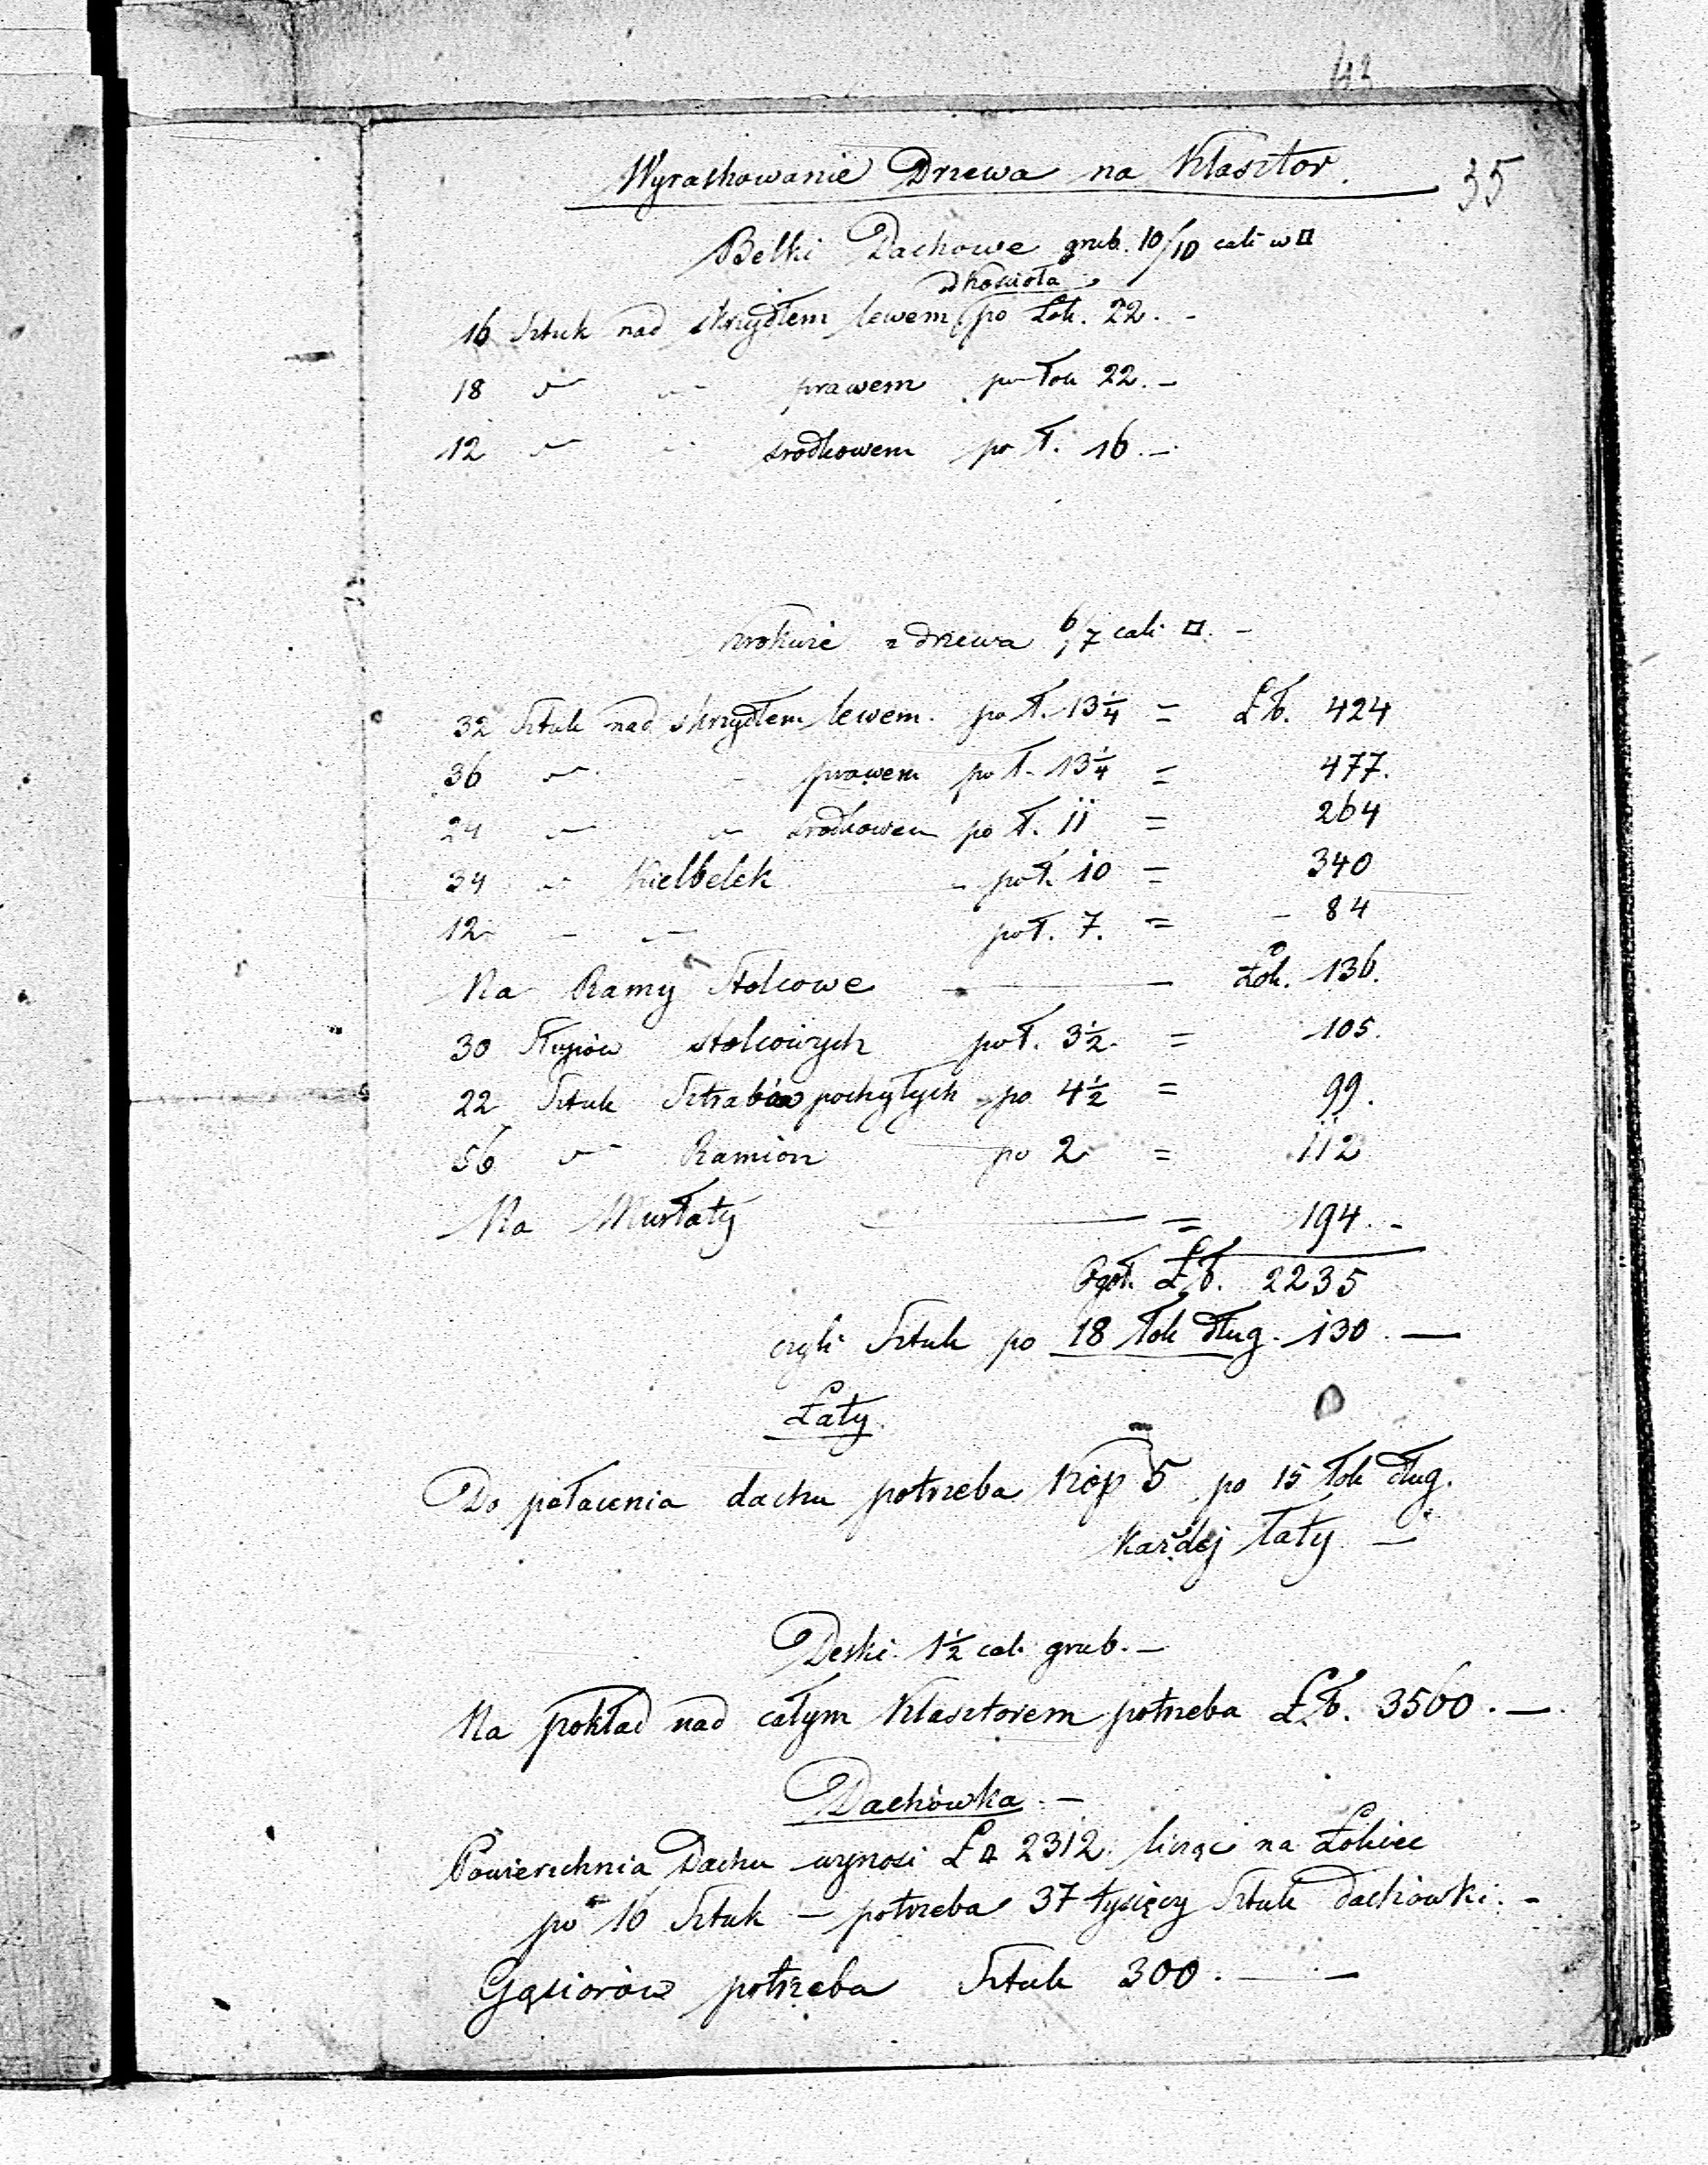 43
Wyrachowanie Drzewa na Klasztor.
35
Belki Dachowe grub. 10/10 cali w □
od Kościoła
16 Sztuk nad skrzydłem lewem po Łok. 22. -
18 " " prawem po Łok 22. -
12 " " srodkowem po Ł. 16. -
Krokwie z drzewa 6/7 cali □. -
32 Sztuk nad skrzydłem lewem. po Ł. 13 1/4 = Łb. 424
36 " - prawem po Ł. 13 1/4 = 477.
24 " " srodkowem po Ł. 11 = 264
34 " Kielbelek - po Ł. 10 = 340
12 - " po Ł. 7. = - 84
Na Ramy Stolcowe — Łok. 136.
30 Słupów stolcowych po Ł. 3 1/2. = 105.
22 Sztuk Sztrabów pochyłych po 4 1/2 = 99.
56 " Ramion po 2 = 112
Na Murłaty — = 194. -
Ogół. Łb. 2235
czyli Sztuk po 18 Łok dług. 130. —
Łaty.
Do połacenia dachu potrzeba Kóp 5 po 15 Łok dług.
Każdéj łaty —
Deski 1 1/2 cal. grub. -
Na pokład nad całym Klasztorem potrzeba Łb. 3560. —
Dachówka. -
Powierzchnia Dachu wynosi Ł □ 2312. licząc na Łokiec
po 16 Sztuk — potrzeba 37 tysięcy Sztuk dachówki. -
Gąsiorów potrzeba Sztuk 300. — -